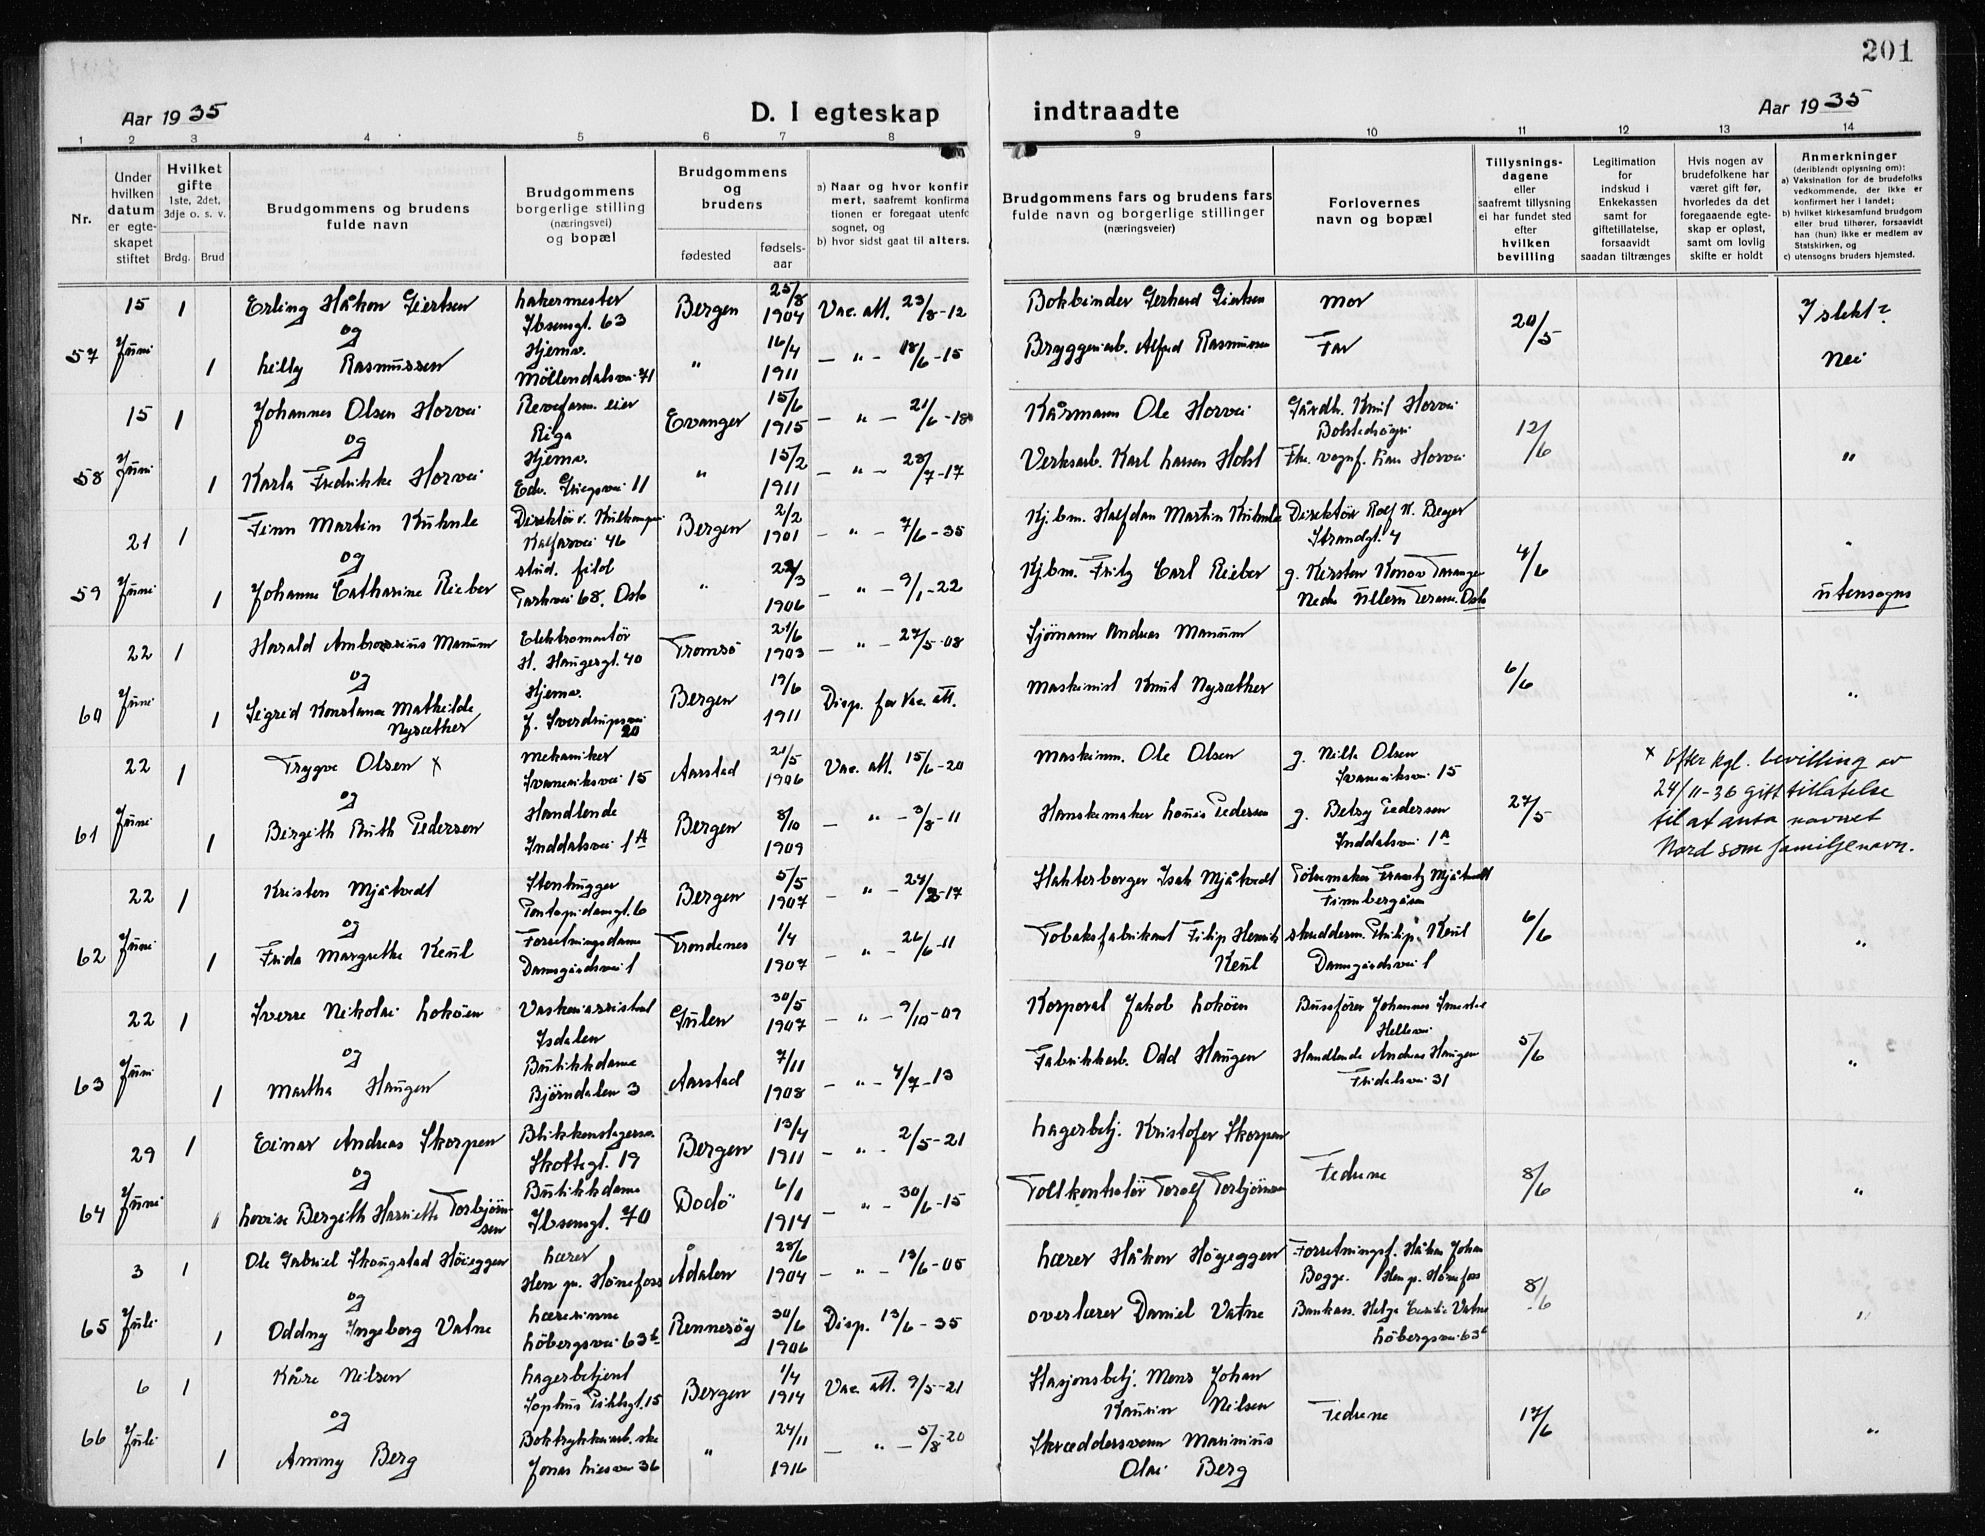 201
Aar 1935
D. I egteskap indtraadte
Aar 1935
1 2 3 4 5 6 7 8 9 10 11 12 13 14
Nr.
Under hvilken datum er egteskapet stiftet
Hvilket gifte 1ste, 2det, 3dje o. s. v.
Brdg. Brud
Brudgommens og brudens fulde navn
Brudgommens borgerlige stilling (næringsvei) og bopæl
Brudgommens og brudens
fødested fødselsaar
a) Naar og hvor konfirmert, saafremt konfirmationen er foregaat utenfor sognet, og
b) hvor sidst gaat til alters.
Brudgommens fars og brudens fars fulde navn og borgerlige stillinger (næringsveier)
Forlovernes navn og bopæl
Tillysningsdagene eller saafremt tillysning ei har fundet sted efter hvilken bevilling
Legitimation for indskud i Enkekassen samt for giftetillatelse, forsaavidt saadan tiltrænges
Hvis nogen av brudefolkene har været gift før, hvorledes da det foregaaende egteskap er opløst, samt om lovlig skifte er holdt
Anmerkninger (deriblandt oplysning om):
a) Vaksination for de brudefolks vedkommende, der ikke er konfirmert her i landet;
b) hvilket kirkesamfund brudgom eller brud tilhører, forsaavidt han (hun) ikke er medlem av Statskirken, og
c) utensogns bruders hjemsted.
57 15 Juni 1 Erling Håkon Giertsen
Ibsensgt. 63 Bergen 25/8 1904 Vac. att. 23/8-12
Bokbinder Gerhard Giertsen Mor 20/5 I slekt?
og
1 Lilly Rasmussen Hjemv. Møllendalsvei 71 " 16/4 1911 — " — 18/6-15
Bryggeriarb. Alfred Rasmussen Far Nei
58 15 Juni 1 Johannes Olsen Horvei Revefarm. eier Riga Evanger 15/6 1915 — " — 21/6-18
Kårmann Ole Horvei Gårdb. Knut Horvei 12/6
og
1 Karla Fredrikke Horvei Hjemv. Edv. Griegsvei 11 " 15/2 1911 — " — 23/7-17
Verksarb. Karl Larsen Holst Horvei "
59 21 Juni 1 Finn Martin Kuhnle Direktør Kalfarvei 46 Bergen 2/2 1901 — " — 7/6-35
Kj.bm. Halfdan Martin Kuhnle Direktør Rolf K. Beyer Strandgt. 4 4/6 "
og
1 Johanne Catharine Rieber stud. filol Parkvei 68. Oslo " 22/3 1906 — " — 9/1-22
Kjbm. Fritz Carl Rieber g. Kirsten Konow Taranger Nedre Ullern Terasse. Oslo utensogns
60 22 Juni 1 Harald Ambrosius Manum Elektromontør H. Haugesgt. 40 Tromsø 21/6 1903 — " — 27/5-08
Sjømann Andreas Manum 6/6
og
1 Sigrid Konstanse Mathilde Nysæther Hjemv. J. Sverdrupsvei 20 Bergen 19/6 1911 Disp. for Vac. att.
Maskinist Knut Nysæther "
61 22 Juni 1 Trygve Olsen x Mekaniker Svaneviksvei 15 Aarstad 21/5 1906 Vac. att. 15/6-20
Maskinm. Ole Olsen g. Nilla Olsen Svaneviksvei 15 27/5
og
1 Birgith Ruth Pedersen Handlende Inddalsvei 1A Bergen 8/10 1909 — " — 3/8-11
Hanskemaker Louis Pedersen g. Betsy Pedersen Inddalsvei 1A
x Efter kgl. bevilling av 24/11-36 gitt tillatelse til at anta navnet Nord som familjenavn.
62 22 Juni 1 Kristen Mjåtvedt Stenhugger Bergen 5/5 1907 — " — 24/3-17
Isak Mjåtvedt Pølsemaker Frantz Mjåtvedt Finnbergåsen 6/6
og
1 Frida Margrethe Keul Forretningsdame Damsgårdsvei 1 Trondenes 1/4 1907 — " — 26/6-11
Tobaksfabrikant Filip Henrik Keul skredderm. Philip Keul Damsgårdsvei 1 "
63 22 Juni 1 Sverre Nikolai Lokøen Isdalen Gulen 30/5 1907 — " — 9/10-09
Korporal Jakob Lokøen Bussfører Johannes 5/6
og
1 Martha Haugen Butikkdame Bjørndalen 3 Aarstad 7/11 1908 — " — 4/7-13
Fabrikkarb. Odd Haugen Handlende Andreas Haugen Fridalsvei 31 "
64 29 Juni 1 Einar Andreas Skorpen Blikkenslagersv. Skottegt. 19 Bergen 13/4 1911 — " — 2/5-21
Lagerbetj. Kristofer Skorpen Fedrene 8/6
og
1 Lovise Bergith Harriette Torbjørnsen Butikkdame Ibsensgt. 70 Bodø 6/1 1914 — " — 30/6-15
Tollkontrolør Torolf Torbjørnsen "
65 3 Juli 1 Ole Gabriel Skougstad Høieggen Lærer Hen pr. Hønefoss Ådalen 28/6 1904 — " — 13/6-05
Lærer Håkon Høyeggen Forretningsf. Håkon Johan Bogge. Hen p. Hønefoss 8/6
og
1 Oddny Ingeborg Vatne Lærerinne Løbergsvei 63b Rennesøy 30/6 1906 Disp. 13/6-35
overlærer Daniel Vatne Bankass. Helga Cecilie Vatne Løbergsvei 63b "
66 6 Juli 1 Kåre Nilsen Lagerbetjent Bergen 1/4 1914 Vac. att. 9/5-21
Stasjonsbetj. Mons Johan Kaurin Nilsen Fedrene 17/6
og
1 Anny Berg Boktrykkeriarb.ske Jonas Liesvei 36 " 24/11 1916 — " — 5/8-20
Skreddersvenn Marinius Olai Berg "